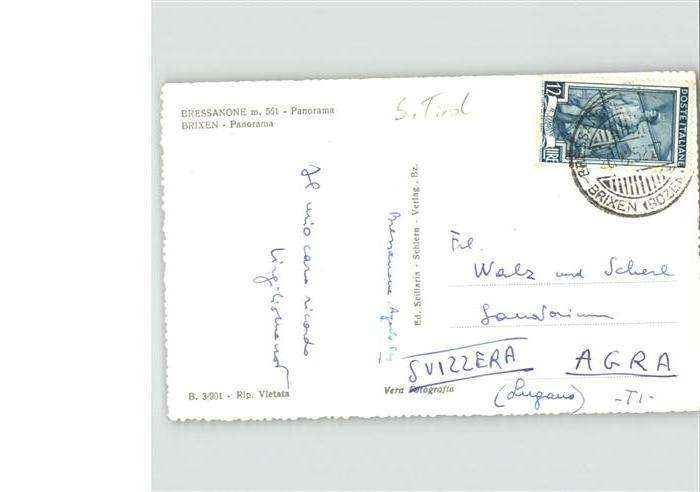 BRESSANONE m. 561 - Panorama
BRIXEN - Panorama
S. Tirol
12
LIRE
POSTE ITALIANE
BRIXEN (BOZEN)
Il mio caro ricordo
Bressanone
Ed. Sciliaria - Schlern - Verlag - Bz.
Frl.
Walz und Scherl
Sanatorium
SVIZZERA AGRA
(Lugano) -TI-
B. 3/901 - Rip. Vietata
Vera Fotografia